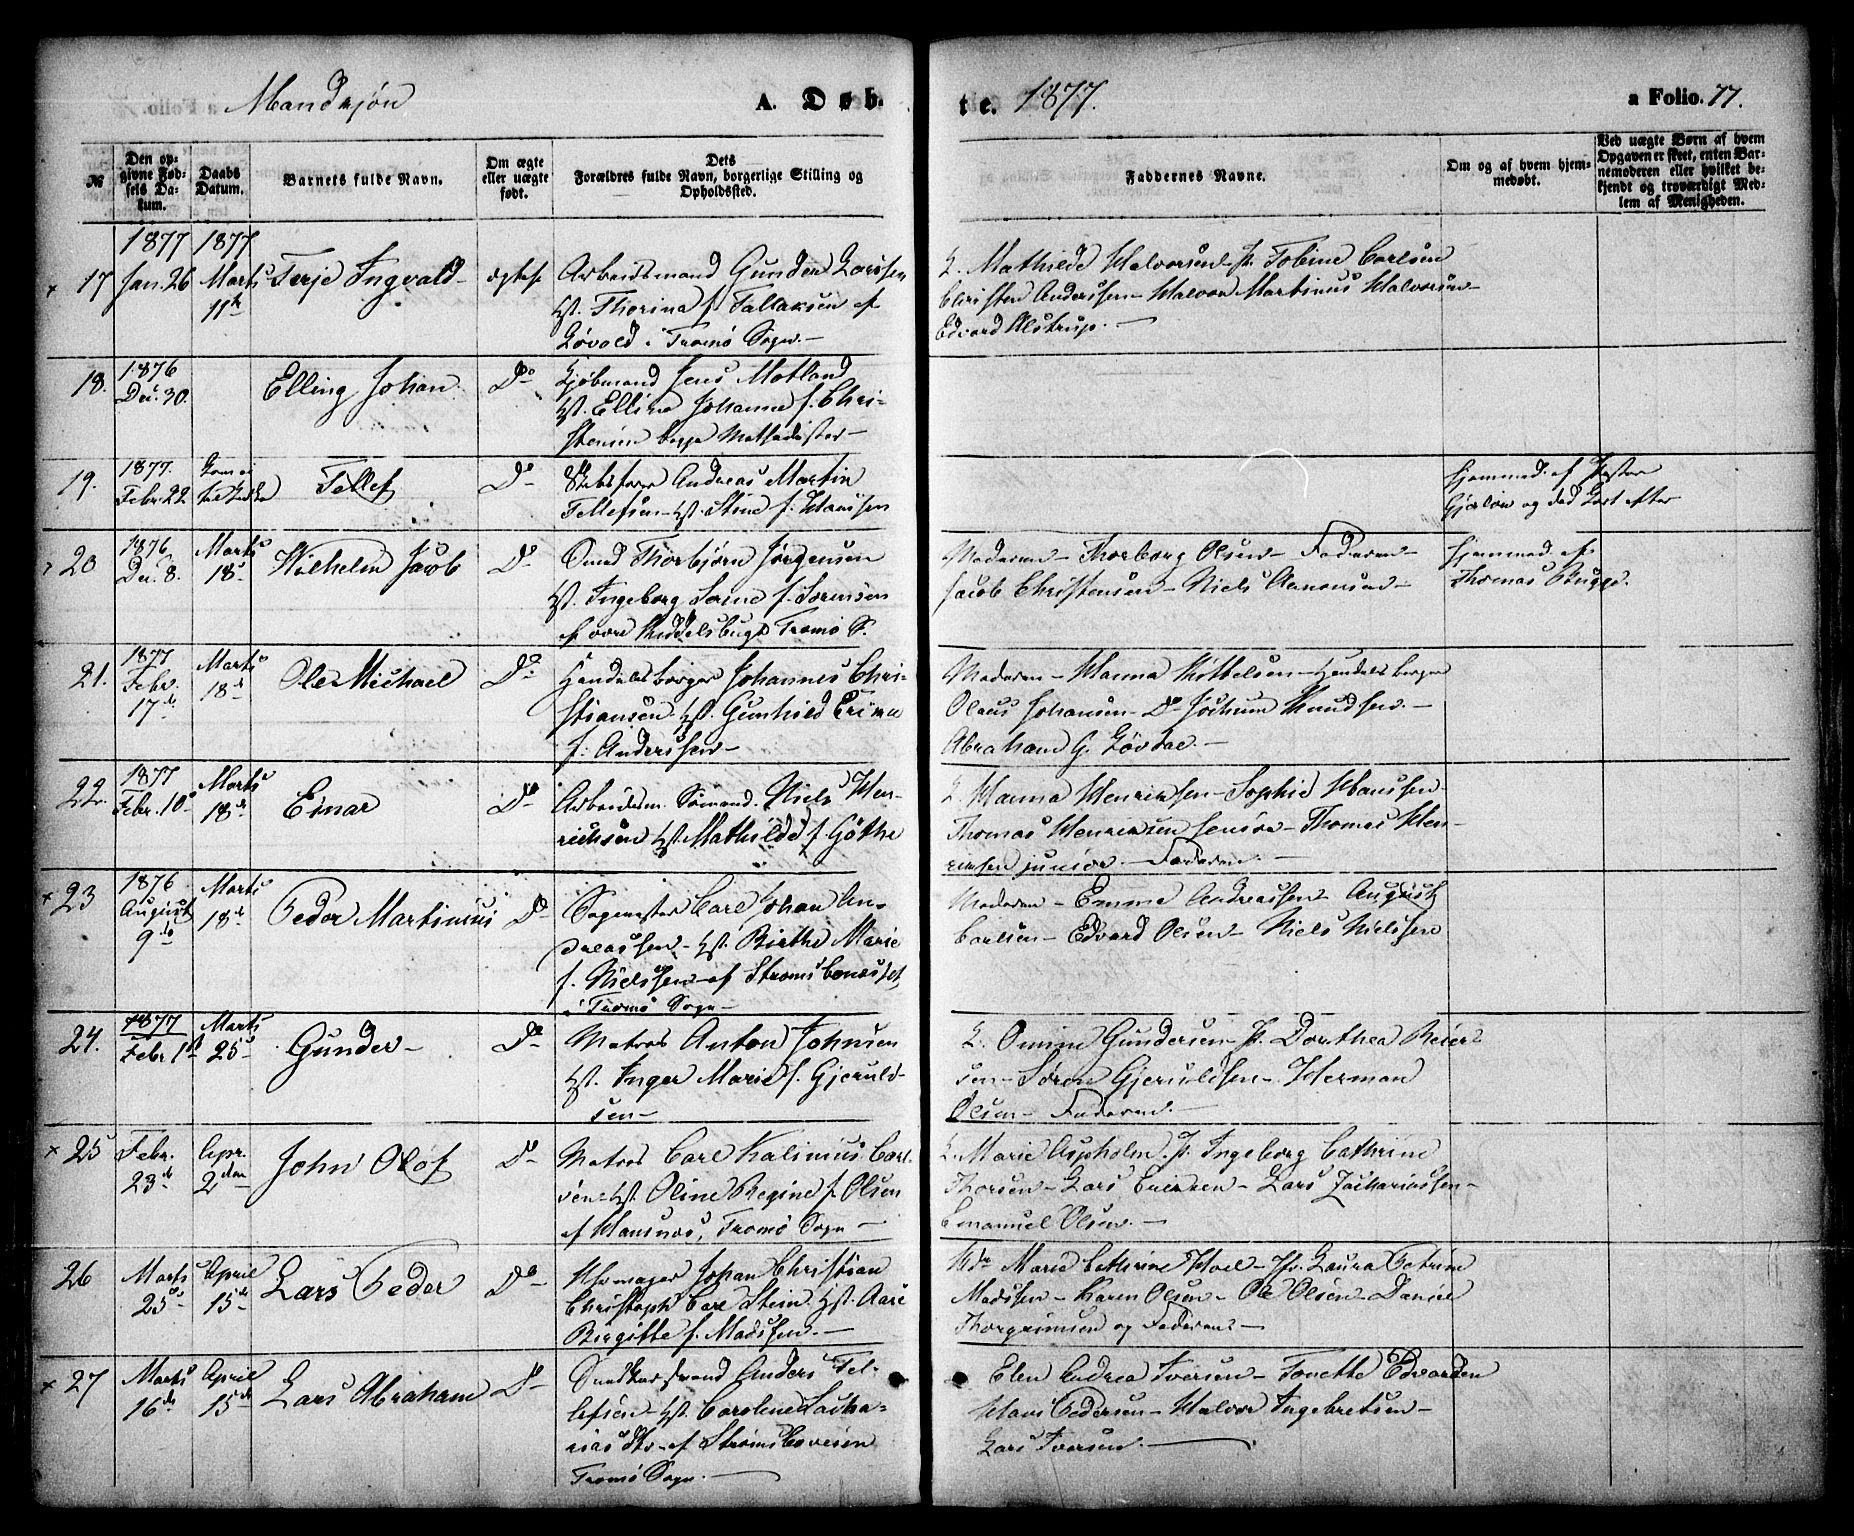 Mandkjøn A. Døb-
te. 1877. a Folio. 77.
No
Den op-
givne Fød-
sels Da-
tum.
Daabs
Datum.
Barnets fulde Navn.
Om ægte
eller uægte
født.
Dets
Forældres fulde Navn, borgerlige Stilling og
Opholdssted.
Faddernes Navne.
Om og af hvem hjem-
medøbt.
Ved uægte Børn af hvem
Opgaven er skeet, enten Bar-
nemoderen eller hvilket be-
kjendt og troværdigt Med-
lem af Menigheden.
17
1877
Jan. 26
1877
Marts
11te
Terje Ingvald
ægtef
Arbeidsmand Gunder Larssen
Hst. Thorina f. Tallaksen af
Løvold i Tromø Sogn.
Mathilde Halvorsen P. Tobine Carlsen
Christen Anderssen Halvor Martinus Halvorsen
Edvard Alstrup.
18.
1876
Dec. 30.
Elling Johan
Do
Kjøbmand Jens Motland
Hst. Elline Johanne f. Chri-
stensen begge Methodister
19.
1877.
Febr. 22
Tellef
Do
Andreas Martin
Tellefsen Hst. Stine f. Hanssen
hjemmed. af Pastor
Gjørløw og død kort efter
20
1876
Dec. 8.
Marts
18
Wilhelm Jacob
Do
Smed Thorbjørn Jørgensen
Hst. Ingeborg Serine f. Sørensen
af Tromø S.
Moderen Thorborg Olsen Faderen
Jacob Christensen Niels Aanonsen
hjemmed. af
Thomas Bugge.
21.
1877
Febr.
17de
Marts
18de
Ole Michael
Do
Handelsborger Johannes Chri-
stiansen Hst. Gunhild
f. Anderssen
Moderen Hanna Handelsborger
Olaus Johansen Do Jochum Knudsen.
Abraham G. Løvdae.
22.
1877
Febr. 10
Marts
18de
Einar
Do
Arbeidsm. Sømand. Niels Hen-
richsen Hst. Mathilde f. Gøthe
Hanna Henriksen Sophie Hanssen
Thomas Henriksen senior Thomas Hen-
riksen junior. Faderen.
23
1876
August
9de
Marts
18de
Peder Martinius
Do
Carl Johan An-
dreassen Hst. Birthe Marie
f. Nielssen af
i Tromø Sogn
Moderen Emma Andreassen August
Carlsen Edvard Olsen Niels Nielssen
24.
1877
Febr 1st
Marts
25
Gunder
Do
Matros Anton Johnsen
Hst. Inger Marie f. Gjeruld-
sen
Gundersen P. Dorothea Reier-
sen Søren Gjeruldsen Herman
Olsen Faderen.
25
Febr.
23de
Apr.
2den
John Olof
Do
Matros Carl Kalinius Carl-
sen Hst. Oline Regine f. Olsen
af Hausnæs, Tromø Sogn
Marie Aspholm. P. Ingeborg Cathrine
Thorsen Lars Eriksen Lars Zachariassen
Emanuel Olsen.
26
Marts
25
April
15de
Lars Peder
Do
Uhrmager Johan Christian
Christoph Carl Stein. Hst. Aase
Birgitte f. Madssen.
Marie Cathrine Hoel Laura Petrine
Madssen Karen Olsen Ole Olsen Daniel
Thorgrimsen og Faderen
27
Marts
16de
April
15de
Lars Abraham
Do
Anders Tel-
lefsen Hst. Caroline Sacha-
i
Tromø Sogn.
Elen Andrea Iversen Tonette Edvardsen
Hans Pedersen Halvor Ingebretsen
Lars Iversen.